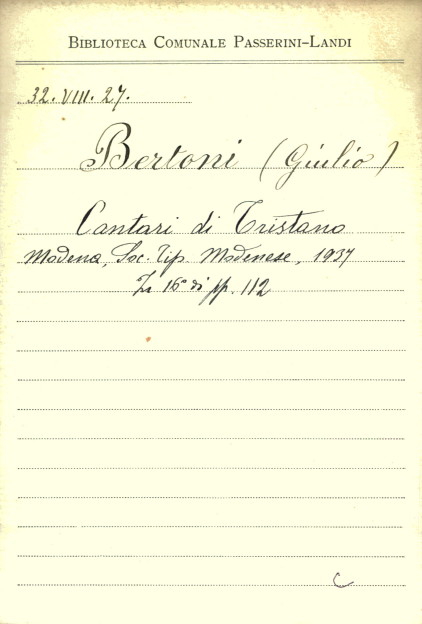 BIBLIOTECA COMUNALE PASSERINI-LANDI
32. VIII. 27.
Bertoni (Giulio)
Cantari di Tristano
Modena, Soc. Tip. Modenese, 1937
In 16° di pp. 112
C